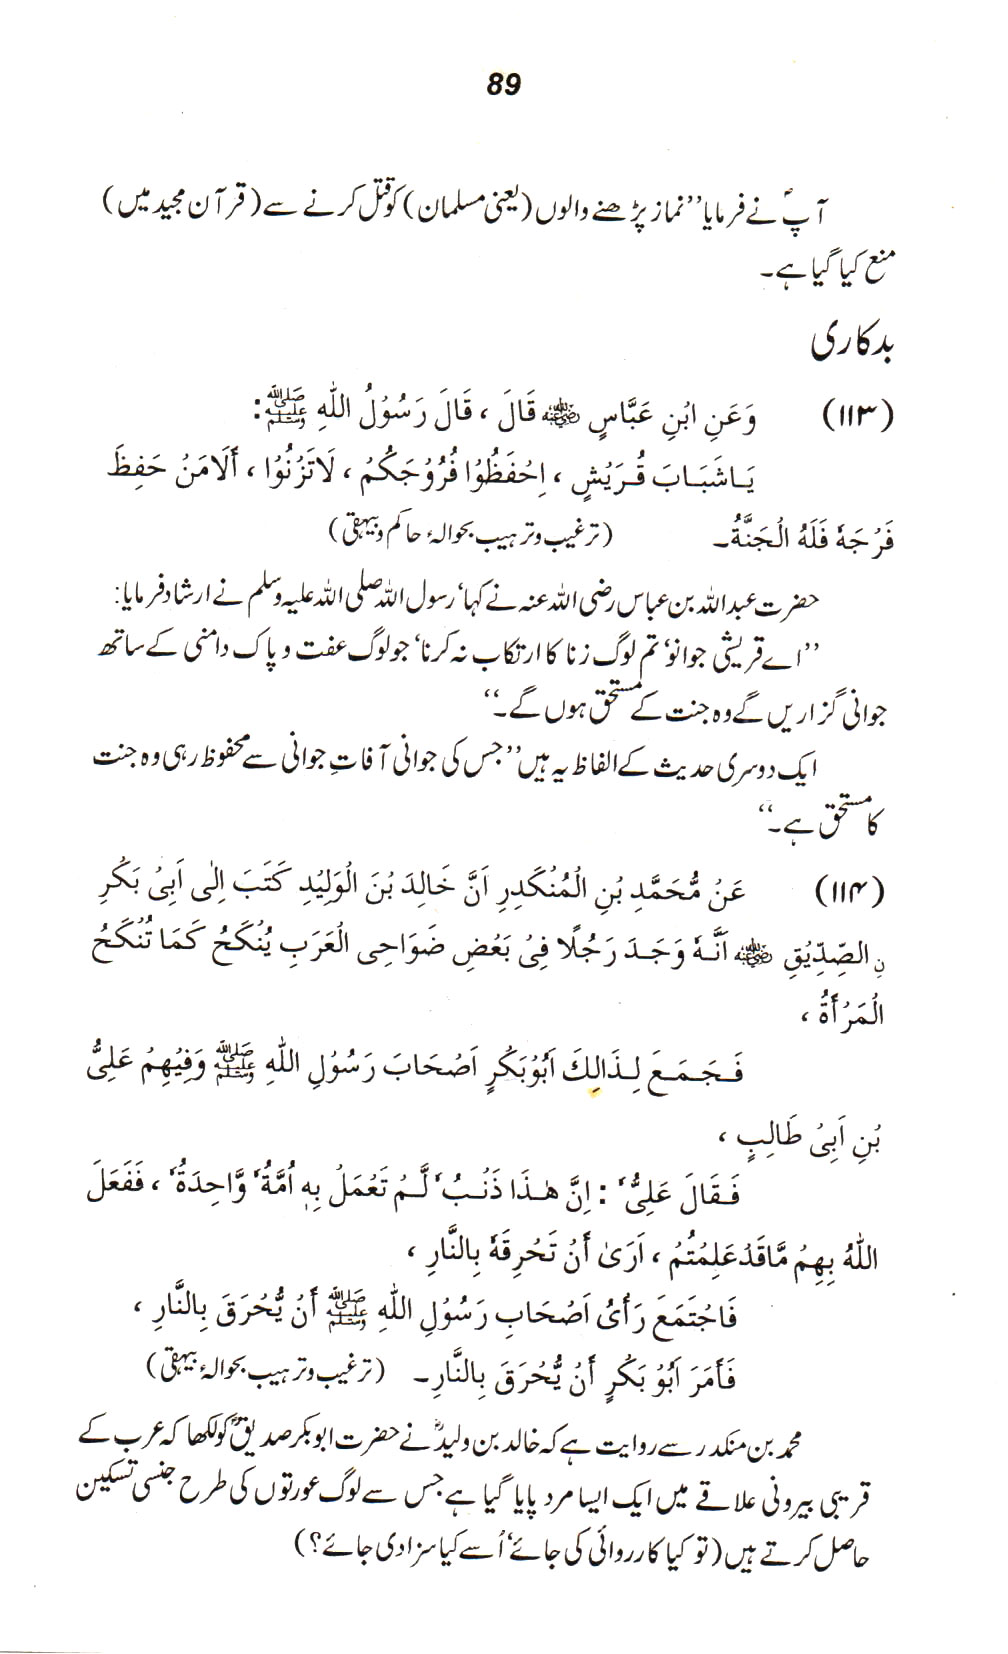 89
آپؐ نے فرمایا ’’نماز پڑھنے والوں (یعنی مسلمان) کو قتل کرنے سے (قرآن مجید میں)
منع کیا گیا ہے۔
بدکاری
(۱۱۳) وَعَنِ ابْنِ عَبَّاسٍ ﷜ قَالَ ، قَالَ رَسُوْلُ اللّٰهِ ﷺ:
يَاشَبَابَ قُرَيْشٍ ، اِحْفَظُوْا فُرُوْجَكُمْ ، لَاتَزْنُوْا ، أَلَامَنْ حَفِظَ
فَرْجَهٗ فَلَهُ الْجَنَّةُ۔ (ترغیب و ترہیب بحوالۂ حاکم و بیہقی)
حضرت عبداللہ بن عباس رضی اللہ عنہ نے کہا‘ رسول اللہ صلی اللہ علیہ وسلم نے ارشاد فرمایا:
’’اے قریشی جوانو‘ تم لوگ زنا کا ارتکاب نہ کرنا‘ جو لوگ عفت و پاک دامنی کے ساتھ
جوانی گزاریں گے وہ جنت کے مستحق ہوں گے۔‘‘
ایک دوسری حدیث کے الفاظ یہ ہیں ’’جس کی جوانی آفاتِ جوانی سے محفوظ رہی وہ جنت
کا مستحق ہے۔‘‘
(۱۱۴) عَنْ مُّحَمَّدِ بْنِ الْمُنْكَدِرِ اَنَّ خَالِدَ بْنَ الْوَلِيْدِ كَتَبَ اِلٰى اَبِىْ بَكْرِ
نِ الصِّدِّيْقِ ﷜ اَنَّهٗ وَجَدَ رَجُلًا فِىْ بَعْضِ ضَوَاحِى الْعَرَبِ يُنْكَحُ كَمَا تُنْكَحُ
الْمَرْأَةُ ،
فَجَمَعَ لِذَالِكَ اَبُوْبَكْرٍ اَصْحَابَ رَسُوْلِ اللّٰهِ ﷺ وَفِيْهِمْ عَلِىُّ
بْنِ اَبِىْ طَالِبٍ ،
فَقَالَ عَلِىٌّ : اِنَّ هٰذَا ذَنْبٌ لَّمْ تَعْمَلْ بِهٖ اُمَّةٌ وَّاحِدَةٌ ، فَفَعَلَ
اللّٰهُ بِهِمْ مَّاقَدْعَلِمْتُمْ ، اَرٰى أَنْ تَحْرِقَهٗ بِالنَّارِ ،
فَاجْتَمَعَ رَأْىُ اَصْحَابِ رَسُوْلِ اللّٰهِ ﷺ أَنْ يُّحْرَقَ بِالنَّارِ ،
فَأَمَرَ اَبُوْ بَكْرٍ أَنْ يُّحْرَقَ بِالنَّارِ۔ (ترغیب و ترہیب بحوالۂ بیہقی)
محمد بن منکدر سے روایت ہے کہ خالد بن ولیدؓ نے حضرت ابوبکر صدیقؓ کو لکھا کہ عرب کے
قریبی بیرونی علاقے میں ایک ایسا مرد پایا گیا ہے جس سے لوگ عورتوں کی طرح جنسی تسکین
حاصل کرتے ہیں (تو کیا کارروائی کی جائے‘ اُسے کیا سزا دی جائے؟)